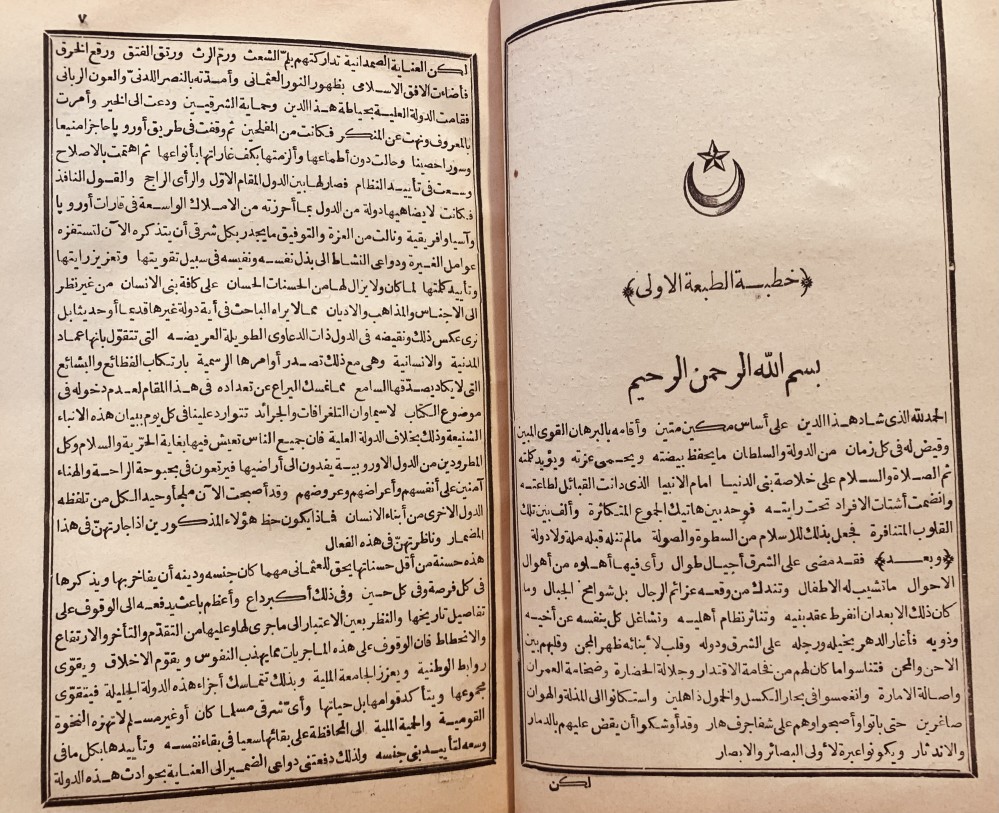 ﴿خطبــة الطبعة الاولى﴾
بسم الله الرحمن الرحيم
الحمد لله الذى شاد هــذا الدين على أساس مكين متين وأقامه بالبرهان القوى المبين
وقيض له فى كل زمان من الدولة والسلطان ما يحفظ بيضته ويحــمى عزته ويؤيد كلمته
ثم الصــلاة والســلام على خلاصة بنى الدنيا امام الانبيا الذى دانت القبائل لطاعته
وانضمت أشتات الافراد تحت رايتــه فوحد بين هاتيك الجموع المتكاثرة وألف بين تلك
القلوب المتنافرة فجعل بذلك للاسلام من السطوة والصولة مالم تنله قبله ملة ولا دولة
﴿وبعــد﴾ فقــد مضى على الشرق أجيــال طوال رأى فيهــا أهلوه من أهوال
الاحوال ما تشيب له الاطفال وتندك من وقعــه عزائم الرجال بل شوامخ الجبال وما
كان ذلك الا بعد ان انفرط عقد بنيه وتناثر نظام أهليــه وتشاغل كل بنفسه عن أخيــه
وذويه فأغار الدهر بخيله ورجله على الشرق ودوله وقلب لأبنائه ظهر المجن وقلبهم بين
الاحن والمحن فتناسوا ما كان لهم من فخامة الاقتدار وجلالة الحضارة وضخامة العمران
واصــالة الامارة وانغمسوا فى بحار الكســل والخمول ذاهلين واستكانوا الى المذلة والهوان
صاغرين حتى باتوا وأصبحوا وهم على شفا جرف هار وقد أوشكوا أن يقضى عليهم بالدمار
والاندثار ويكونوا عبرة لأولى البصائر والابصار
لكن
٧
لكن العناية الصمدانية تداركتهم بلمّ الشعث ورم الرث ورتق الفتق ورقع الخرق
فأضاءت الافق الاســلامى بظهور النور العثمانى وأمــدّته بالنصر اللدنى والعون الربانى
فقامت الدولة العليــة بحياطة هــذا الدين وحماية الشرقيــين ودعت الى الخير وأمرت
بالمعروف ونهت عن المنكر فكانت من المفلحين ثم وقفت فى طريق أوروپا حاجزا منيعا
وسورا حصينا وحالت دون أطماعها وألزمتها بكف غاراتها بأنواعها ثم اهتمت بالاصلاح
وســعت فى تأييــد النظام فصار لها بين الدول المقام الاوّل والرأى الراجح والقــول النافذ
فكانت لا يضاهيها دولة من الدول بمــا أحرزته من الامــلاك الواسعة فى قارات أوروپا
وآسيا وافريقية ونالت من العزة والتوفيق ما يجدر بكل شرقى أن يتذكره الآن لتستفزه
عوامل الغــيرة ودواعى النشاط الى بذل نفســه ونفيسه فى سبيل تقويتها وتعزيز رايتها
وتأييد كلمتها لما كان ولا يزال لهــا من الحسنات الحسان على كافة بنى الانسان من غير نظر
الى الاجناس والمذاهب والاديان ممــا لا يراه الباحث فى أية دولة غيرها قديمــا أو حديثا بل
نرى عكس ذلك ونقيضه فى الدول ذات الدعاوى الطويلة العريضــه التى تتقول بانها عمــاد
المدنية والانسانية وهى مع ذلك تصــدر أوامرها الرسمية بارتــكاب الفظائع والبشائع
التى لا يكاد يصــدّقها السامع مما نمسك اليراع عن تعداده فى هــذا المقام لعــدم دخوله فى
موضوع الكتاب لا سيما وان التلغرافات والجرائد تتوارد علينا فى كل يوم ببيان هذه الانباء
الشنيعة وذلك بخلاف الدولة العلية فان جميــع الناس تعيش فيها بغاية الحرّية والسلام وكل
المطرودين من الدول الاوروبيــة يفدون الى أراضيها فيرتعون فى بحبوحة الراحــة والهناء
آمنين على أنفسهم وأعراضهم وعروضهم وقد أصبحت الآن ملجأ وحيد الكل من تلفظه
الدول الاخرى من أبناء الانسان فــاذا يكون حظ هؤلاء المذكورين اذا جارتهنّ فى هذا
المضمــار وناظرتهنّ فى هذه الفعال
هذه حسنة من أقل حسناتها يحق للعثمانى مهما كان جنسه ودينه أن يفاخر بها ويذكرها
فى كل فرصة وفى كل حــين وفى ذلك أكبر داع وأعظم باعث يدفعــه الى الوقوف على
تفاصيل تاريخها والنظر بعين الاعتبار الى ما جرى لها وعليها من التقدّم والتأخر والارتفاع
والانحطاط فان الوقوف على هذه المــاجريات مما يهذب النفوس ويقوّم الاخلاق ويقوّى
روابط الوطنية ويعزز الجامعة الملية وبذلك تتماسك أجزاء هذه الدولة الجليلة فيتقوّى
مجموعها ويتأكد قوامها بل حياتها وأىّ شرقى مسلما كان أو غير مســلم لا تهزه النخوة
القومية والحمية الملية الى المحافظة على بقائها سعيا فى بقاء نفســه وتأييدها بكل ما فى
وسعه لتأييد بنى جنسه ولذلك دفعتنى دواعى الضمــير الى العنــاية بحوادث هــذه الدولة